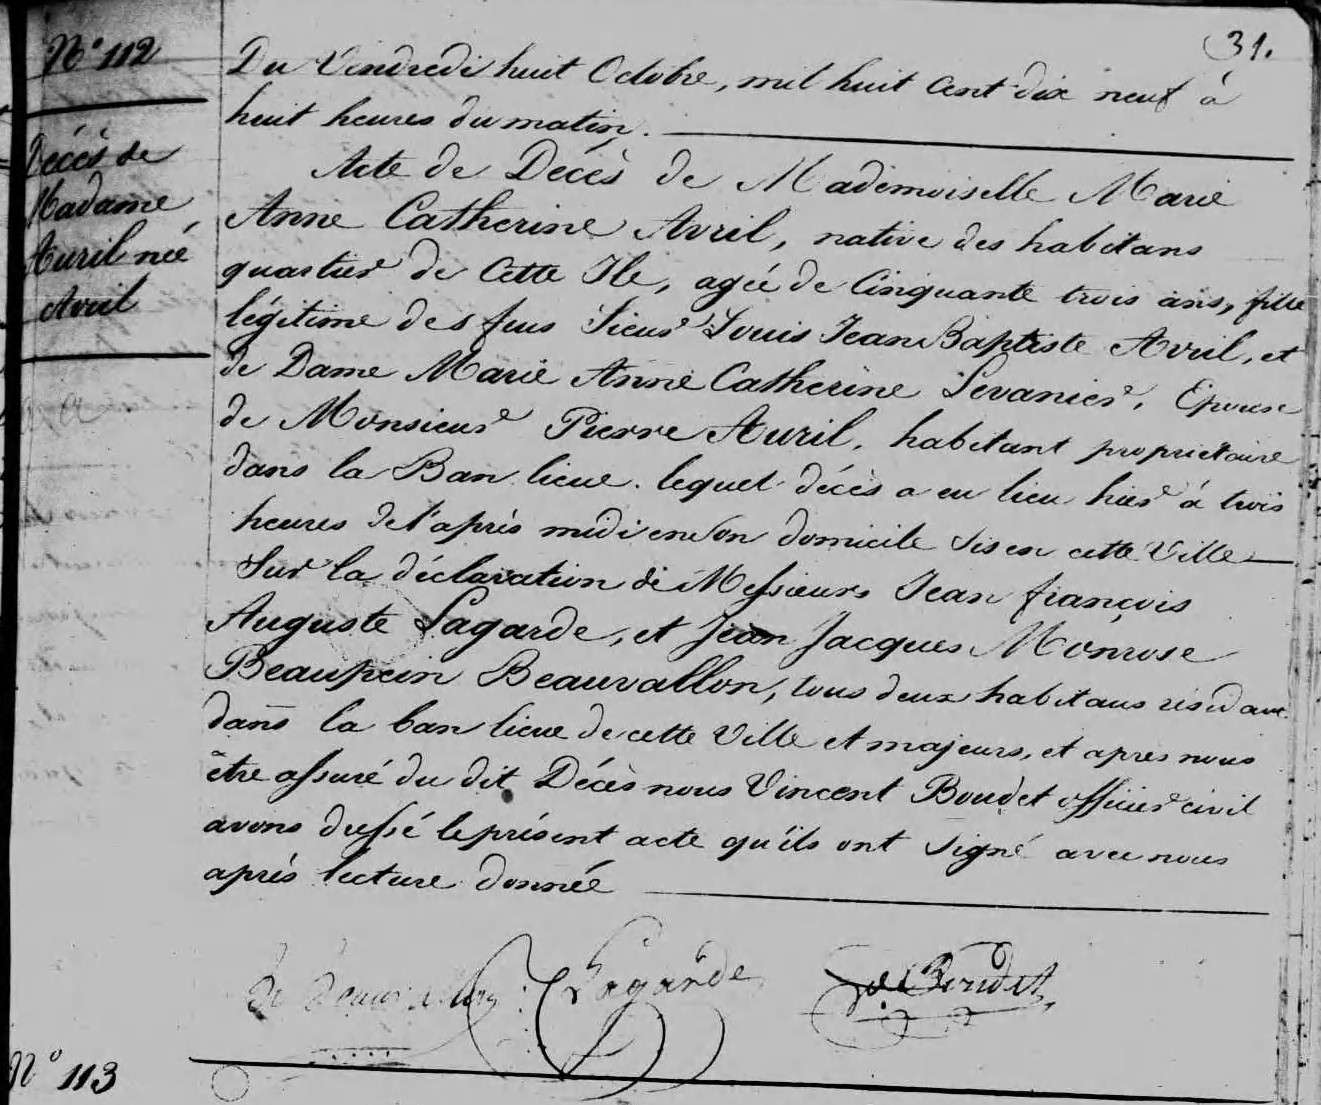 31.
N° 112
Décès de
Madame
Auril née
Avril
Du Vendredi huit Octobre, mil huit cent dix neuf à
huit heures du matin.
Acte de Décès de Mademoiselle Marie
Anne Catherine Avril, native des habitans
quartier de Cette Ile, agée de Cinquante trois ans, fille
légitime des feus Sieur Louis Jean Baptiste Avril, et
de Dame Marie Anne Catherine Levanier, Epouse
de Monsieur Pierre Auril, habitant propriétaire
dans la Ban lieue. lequel décès a eu lieu hier à trois
heures de l'après midi en son domicile sis en cette Ville
Sur la déclaration de Messieurs Jean françois
Auguste Lagarde, et Jean Jacques Monrose
Beaupein Beauvallon, tous deux habitans résidant
dans la ban lieue de cette Ville et majeurs, et après nous
être assuré du dit Décès nous Vincent Boudet officier civil
avons dressé le présent acte qu'ils ont signé avec nous
après lecture donnée
Lagarde
Boudet
N° 113